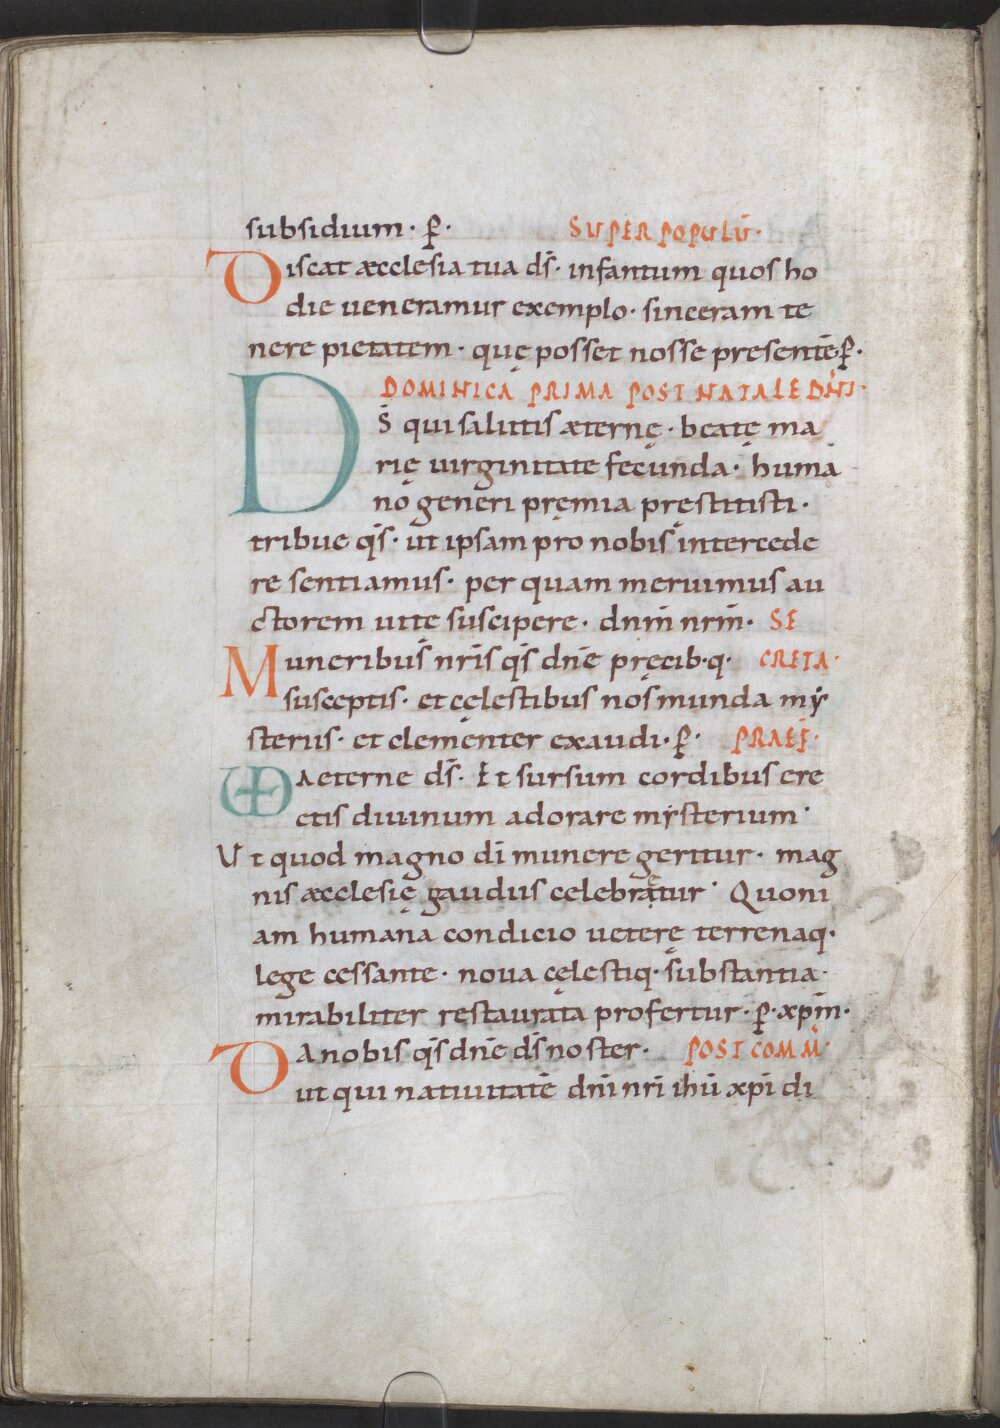 subsidium · p̄ · SUPER POPULŪ ·
Discat æcclesia tua d̄s · infantum quos ho
die ueneramur exemplo · sinceram te
nere pietatem · quę posset nosse presentē · p̄ ·
DOMINICA PRIMA POST NATALE DN̄I ·
D̄S qui salutis æternę · beatę ma
rię uirginitate fecunda · huma
no generi pręmia pręstitisti ·
tribue q̄s · ut ipsam pro nobis intercede
re sentiamus · per quam meruimus au
ctorem uite suscipere · dn̄m nr̄m · SE
Muneribus nr̄is q̄s dn̄e pręcib · q · CRETA ·
susceptis · et cęlestibus nos munda mẏ
steriis · et clementer exaudi · p̄ · PRAEF̄ ·
VD aeterne d̄s · Et sursum cordibus ere
ctis diuinum adorare mẏsterium ·
Ut quod magno dī munere geritur · mag
nis æcclesię gaudiis celebrętur · Quoni
am humana condicio uetere terrenaq ·
lege cessante · noua cęlestiq · substantia ·
mirabiliter restaurata profertur · p̄ · xp̄m ·
Da nobis q̄s dn̄e d̄s noster · POST COMM̄ ·
ut qui natiuitatē dn̄i nr̄i ih̄u xp̄i di